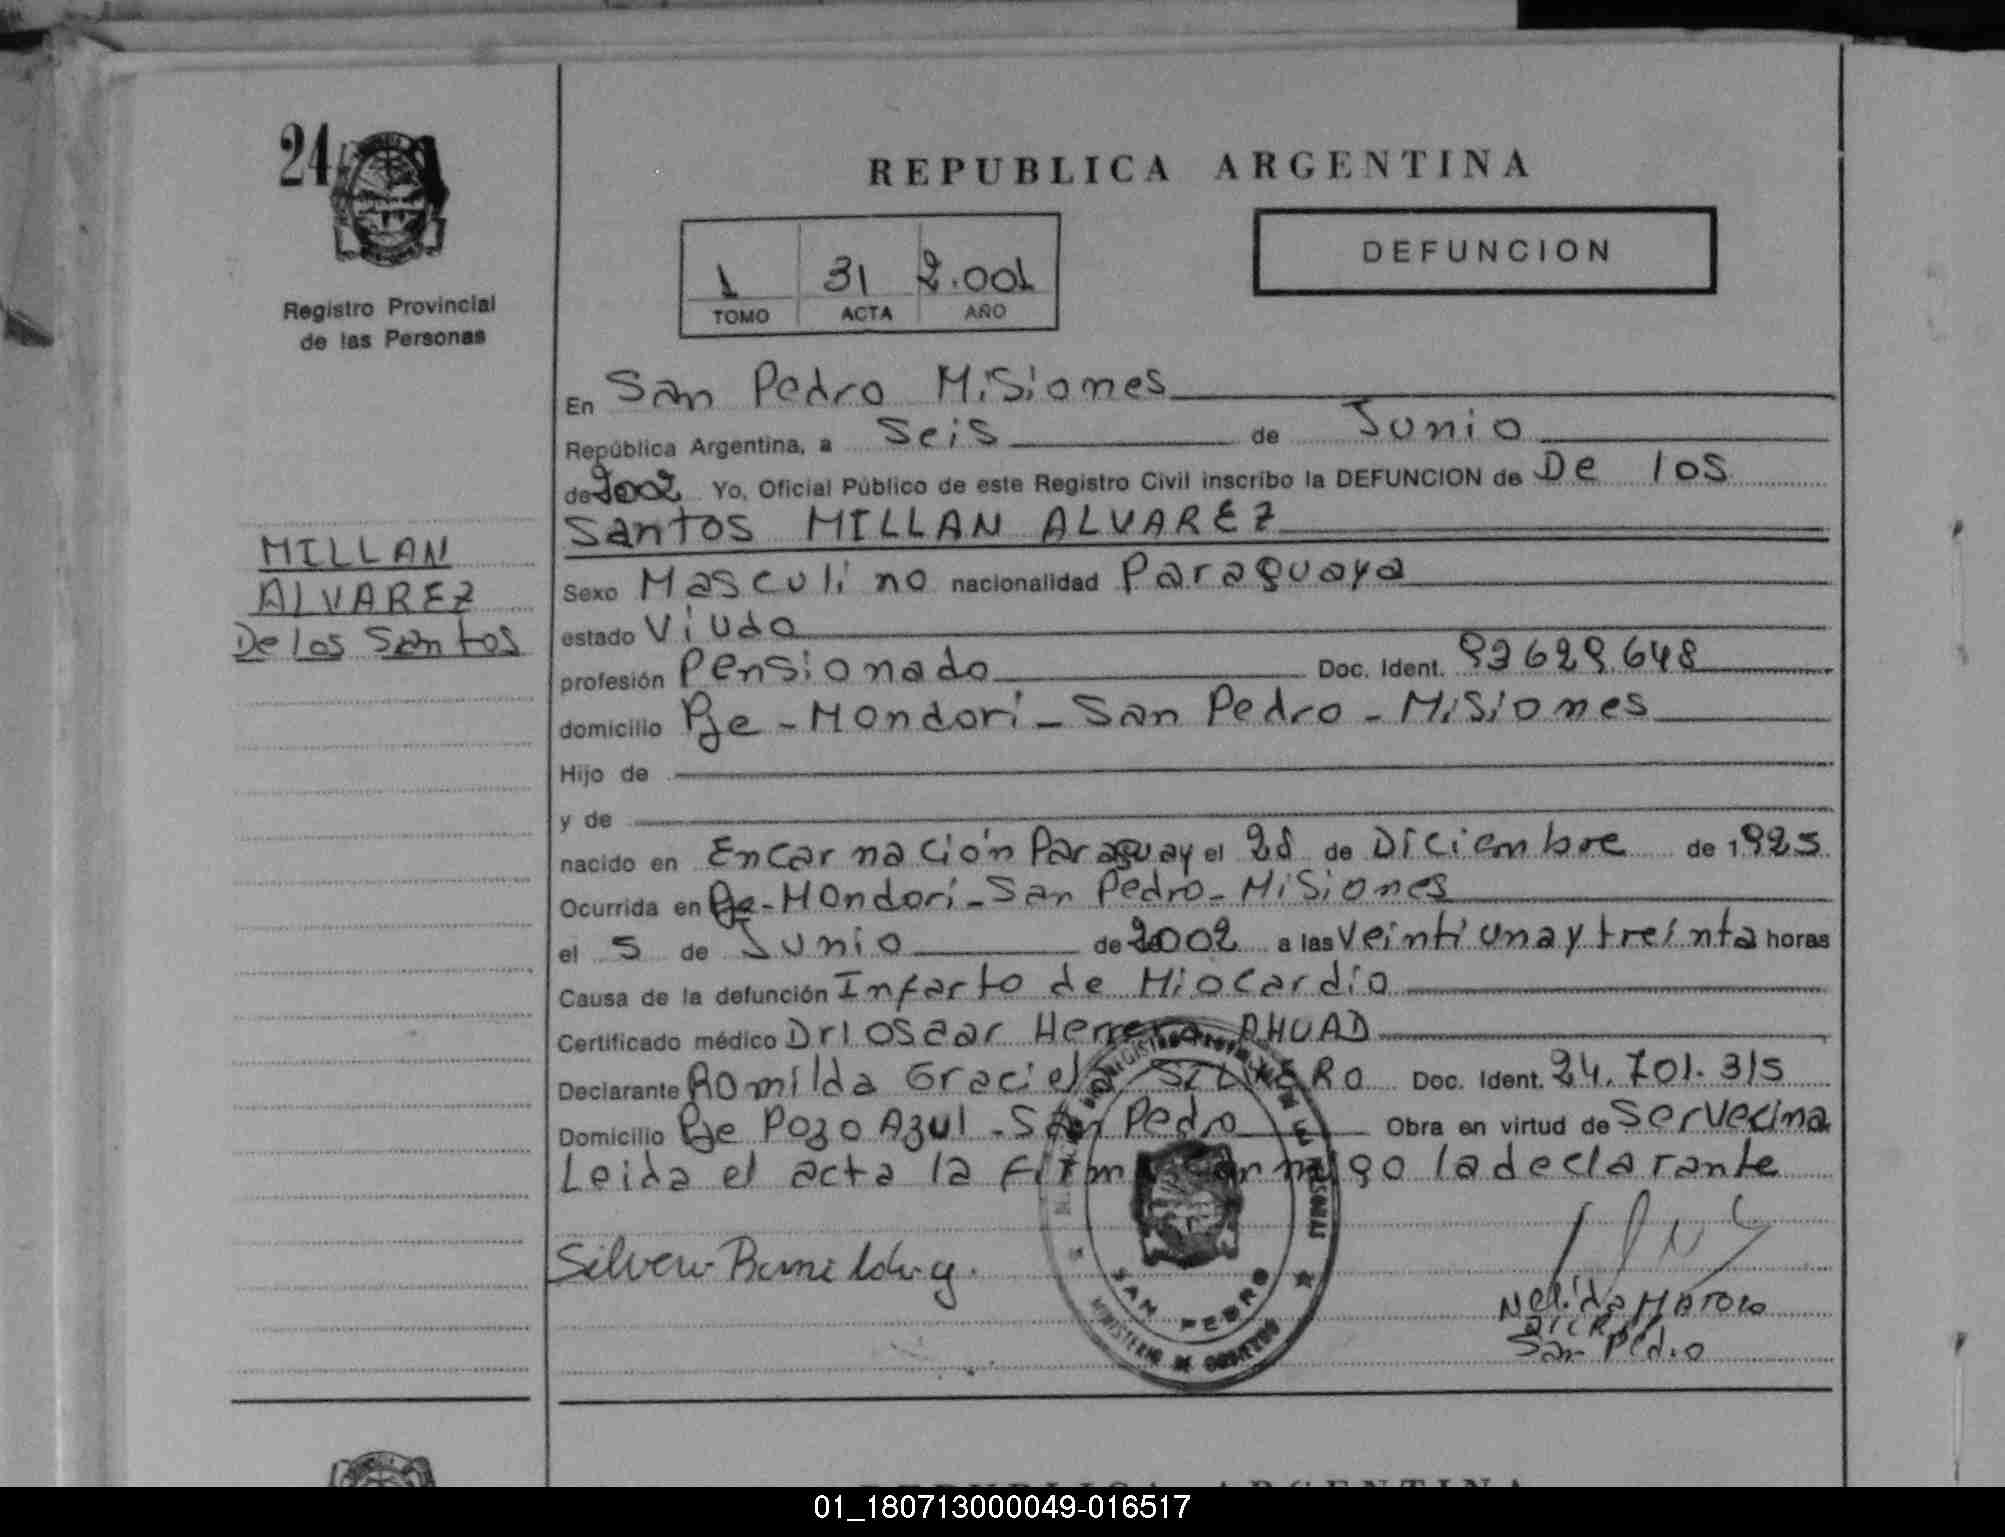 24
REPUBLICA ARGENTINA
DEFUNCION
1 31 2.001
TOMO ACTA AÑO
Registro Provincial
de las Personas
MILLAN
ALVAREZ
De los Santos
En San Pedro Misiones
República Argentina, a Seis de Junio
de 2002 Yo, Oficial Público de este Registro Civil inscribo la DEFUNCION de De los
Santos MILLAN ALVAREZ
Sexo Masculino nacionalidad Paraguaya
estado Viudo
profesión Pensionado Doc. Ident. 93629.648
domicilio Pje - Mondori - San Pedro - Misiones
Hijo de
y de
nacido en Encarnación Paraguay el 28 de Diciembre de 1925
Ocurrida en Pje - Mondori - San Pedro - Misiones
el 5 de Junio de 2002 a las Veintiuna y treinta horas
Causa de la defunción Infarto de Miocardio
Certificado médico Dr Oscar Herrera AHUAD
Declarante Romilda Graciela SILVERO Doc. Ident. 24.701.315
Domicilio Pje Pozo Azul - San Pedro Obra en virtud de Ser vecina
Leida el acta la firma conmigo la declarante
SAN PEDRO
MINISTERIO DE GOBIERNO
Nelida
San Pedro
REPUBLICA ARGENTINA
01_180713000049-016517